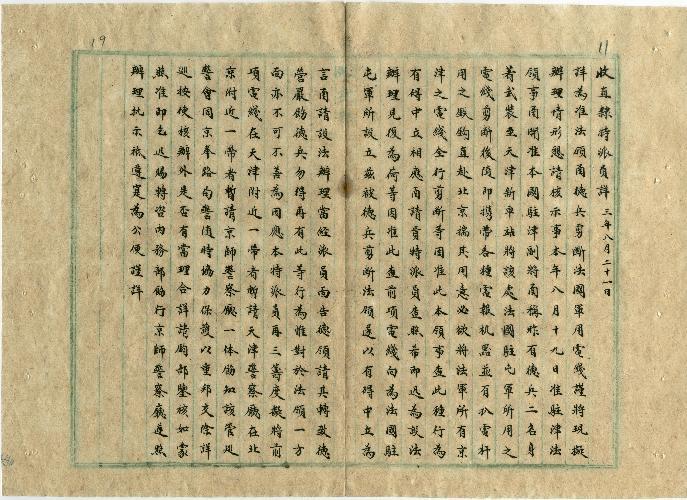 11
收直隸特派員詳 三年八月二十一日
詳為准法領函德兵剪斷法國軍用電綫謹將現擬
辦理情形懇請核示事本年八月十九日准駐津法
領事函開准本國駐津副將函稱昨有德兵二名身
著武裝至天津新車站將該處法國駐屯軍所用之
電綫剪斷後隨即携帶各種電報机器並有扒電杆
用之腳鈎直赴北京揣其用意必欲將法軍所有京
津之電綫全行剪斷等因准此本領事查此種行為
有碍中立相應函請貴特派員查照希即迅為設法
辦理見復為荷等因准此查前項電綫向為法國駐
屯軍所設立茲被德兵剪斷法領遂以有碍中立為
19
言函請設法辦理當經派員面告德領請其轉致德
營嚴飭德兵勿得再有此等行為惟對於法領一方
面亦不可不善為因應本特派員再三籌度擬將前
項電綫在天津附近一帶者暫請天津警察廳在北
京附近一帶者暫請京師警察廳一体飭知該管処
警會同京奉路局警隨時協力保護以重邦交除詳
巡按使核辦外是否有當理合詳請鈞部鑒核如蒙
照准即乞迅賜轉咨內務部飭行京師警察廳遵照
辦理批示祗遵寔為公便謹詳